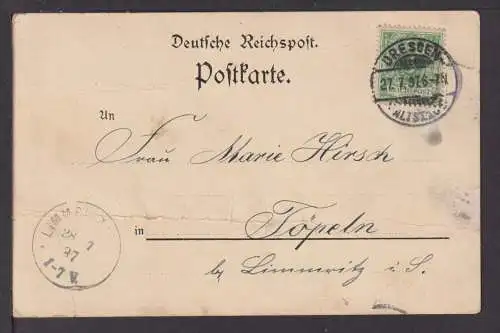 Deutsche Reichspost.
Postkarte.
DRESDEN-
27.7.97.6-7N.
ALTST.
An
Frau Marie Hirsch
in Töpeln
b/ Limmritz i. S.
LIMMRITZ
28 7
97